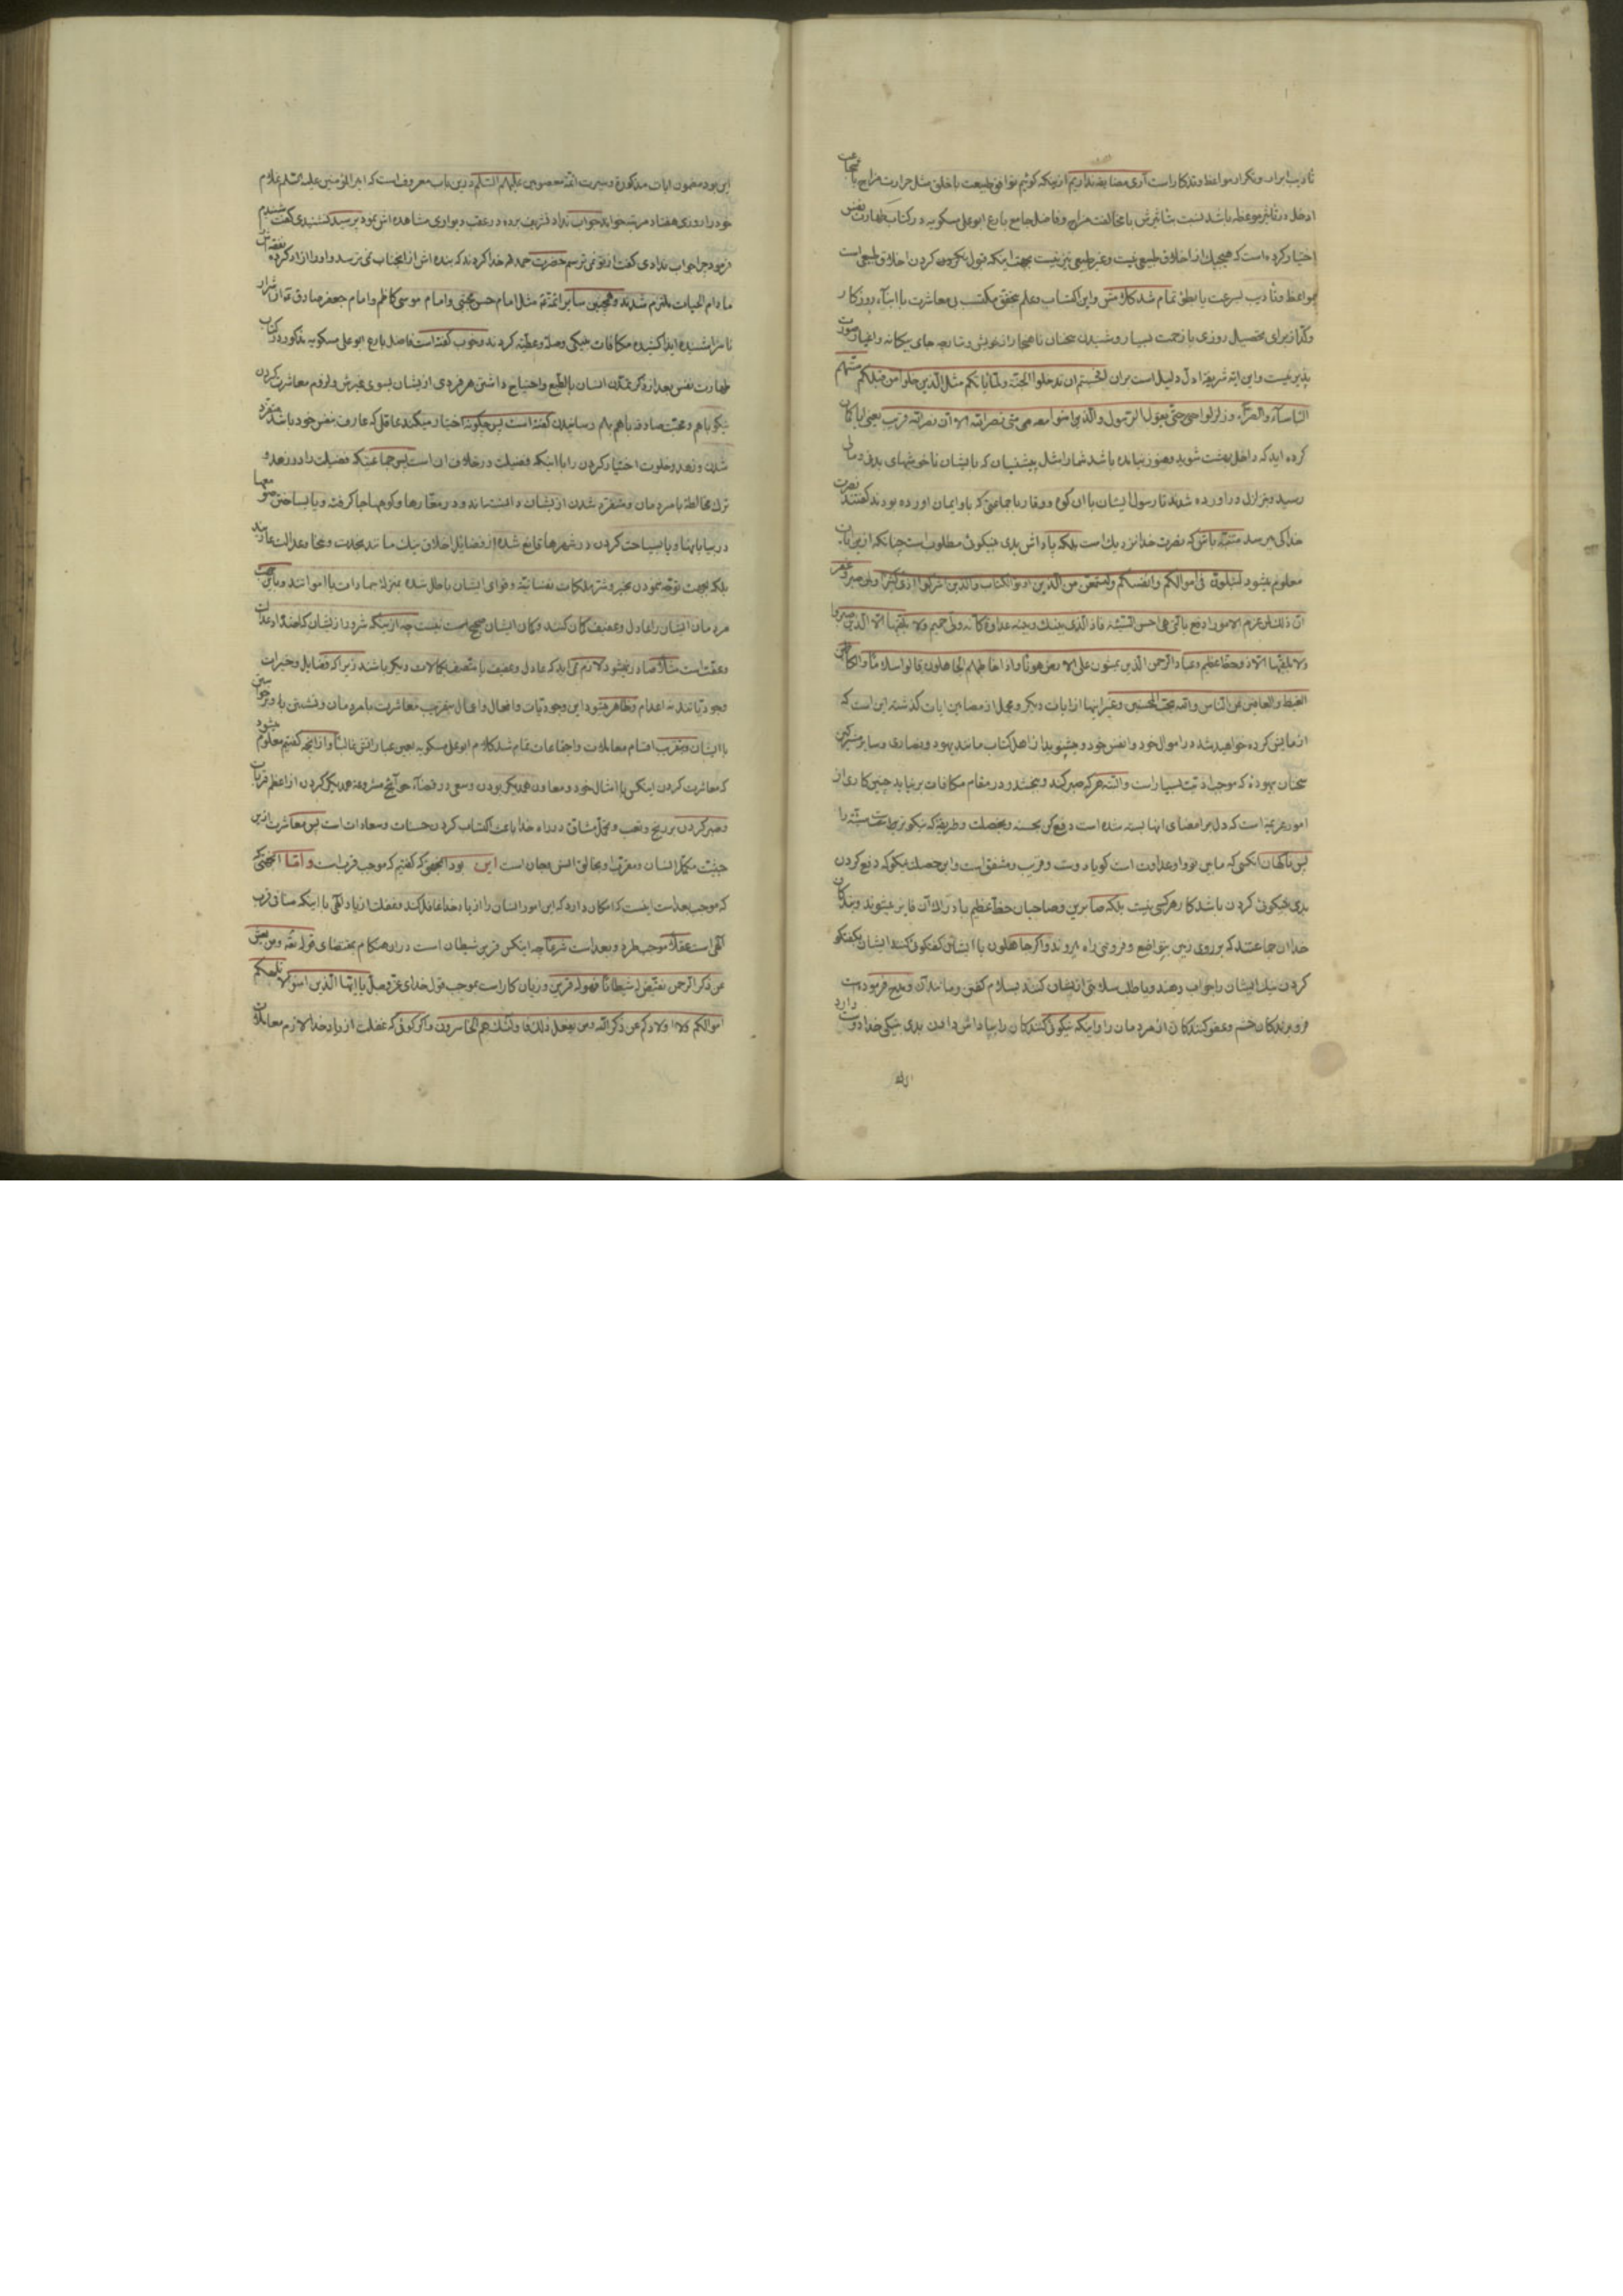 تأدیب براند و تکرار مواعظ و تذکار است آری مضایقه نداریم از اینکه گوئیم توافق طبیعت با خلق مثل حرارت مزاج با شجاعت
ادخل در تأثیر موعظه باشد نسبت بتأثیرش با مخالفت مزاج و فاضل جامع بارع ابو علی مسکویه در کتاب طهارت نفس
اختیار کرده است که هیچیک از اخلاق طبیعی نیست و غیر طبیعی نیز نیست بجهت اینکه قبول نکردن اخلاق طبیعی است
بمواعظ و تأدیب بسرعت یا بطؤ تمام شد کلامش و این اکتساب و علم تحقق مکتسب بی معاشرت با ابنآء روزکار
وکذار برای تحصیل روزی با زحمت بسیار و شنیدن سخنان ناهنجار از خویش و تبار چه جای بیکانه و اغیار صورت
پذیر نیست و این ایه شریفه ادل دلیل است بران ام حسبتم ان تدخلوا الجنّة و لمّا یاتکم مثل الّذین خلوا من قبلکم مسّتهم
الباسآء و الضرّآء و زلزلوا حتّی یقول الرّسول و الّذین امنوا معه متی نصر الله الا انّ نصر الله قریب یعنی ایا کمان
کرده اید که داخل بهشت شوید و هنوز نیامده باشد شما را مثل پیشنیان که بایشان ناخوشیهای بدنی و مالی
رسید و بتزلزل در اورده شدند تا رسول ایشان با ان کوه وقار با جماعتی که باو ایمان اورده بودند کفتند نصرت
خدا کی میرسد متنبّه باش که نصرت خدا نزدیک است بلکه پاداش بدی بنیکوئی مطلوب است چنانکه از این ایات
معلوم میشود لتبلونّ فی اموالکم و انفسکم و لتسمعنّ من الّذین اوتوا الکتاب و الذین اشرکوا اذی کثیرا و لمن صبر و غفر
انّ ذلک لمن عزم الامور ادفع بالّتی هی احسن السّیّئة فاذا الّذی بینک و بینه عداوة کانّه ولیّ حمیم و لا یلقّیها الّا الّذین صبروا
و لا یلقّیها الّا ذو حظّ عظیم و عباد الرّحمن الّذین یمشون علی الارض هونا و اذا خاطبهم الجاهلون قالوا سلاما و الکاظمین
الغیظ و العافین عن النّاس و الله یحبّ المحسنین و غیر اینها از ایات دیکر و مجمل از مضامین ایات کذشته این است که
ازمایش کرده خواهید شد در اموال خود و انفس خود و میشنوید از اهل کتاب مانند یهود و نصاری و سایر مشرکین
سخنان بیهوده که موجب اذیّت بسیار است و البتّه هر که صبر کند و ببخشد و در مقام مکافات برنیاید چنین کاری از
امور عزیمه است که دل بر امضای انها بسته شده است دفع کن بحسنه و بخصلت و طریقه که نیکوتر است سیّئه را
پس ناکهان انکسی که مابین تو و او عداوت است کویا دوست و قریب و مشفق است و این خصلت نیکو که دفع کردن
بدی بنیکوئی کردن باشد کار هر کسی نیست بلکه صابرین و صاحبان حظّ عظیم بادراک آن فایز میشوند و بندکان
خدا ان جماعتند که بر روی زمین بتواضع و فروتنی راه میروند و اکر جاهلون با ایشان کفتکوئی کنند ایشان بکفتکو
کردن نیک ایشان را جواب دهند و یا طلب سلامتی از ایشان کنند بسلام کفتن و مانند آن و مدح فرموده است
فرو برندکان خشم و عفو کنندکان از مردمان را و اینکه نیکوئی کنندکان را بپاداش دادن بدی بنیکی خدا دوست دارد
این بود مضمون ایات مذکوره و سیرت ائمّه معصومین علیهم السّلم درین باب معروف است که امیر المؤمنین علیه السّلم غلام
خود را روزی هفتاد مرتبه خواند جواب نداد تشریف برده در عقب دیواری مشاهده اش نمود پرسید که شنیدی کفت شنیدم
فرمود چرا جواب ندادی کفت از تو نمی ترسم حضرت حمد خدا کردند که بنده اش از انجناب نمی ترسد و او را ازاد کرده بنفقه اش
ما دام الحیات ملتزم شدند و همچنین سایر ائمّه مثل امام حسن مجتبی و امام موسی کاظم و امام جعفر صادق که از اشرار
ناسزا شنیده ایذا کشیده مکافات بنیکی وصله و عطیّه کردند و خوب کفته است فاضل بارع ابو علی مسکویه مذکور در کتاب
طهارت نفس بعد از ذکر تمدّن انسان بالطّبع و احتیاج داشتن هر فردی از ایشان بسوی غیرش و لزوم معاشرت کردن
نیکو باهم و محبّت صادقه باهم بهم رسانیدن کفته است پس چکونه اختیار میکند عاقل که عارف بنفس خود باشد متفرّد
شدن و زهد و خلوت اختیار کردن را با اینکه فضیلت در خلاف ان است پس جماعتیکه فضیلت را در زهد و
ترک مخالطه با مردمان و متفرّد شدن از ایشان دانسته‌اند و در مغارها و کوهها جا کرفته و یا بساختن صومعها
در بیابانها و یا بسیاحت کردن در شهرها قانع شده از فضایل اخلاق نیک مانند نجدت و سخا و عدالت عاریند
بلکه بجهت توجّه نمودن بخیر و شرّ ملکات نفسانیّه و قوای ایشان باطل شده بمنزله جمادات یا اموات‌اند و باین سبب
مردمان ایشان را عادل و عفیف کمان کنند و کمان ایشان صحیح است نیست چه از اینکه شرور از ایشان که اضداد عدالت
و عفّت است مثلا صادر نمیشود لازم نمی آید که عادل و عفیف یا متّصف بکمالات دیکر باشند زیرا که فضایل و خیرات
وجودیّاتند نه اعدام و ظاهر میشود این وجودیّات و افعال و اعمال بتقریب معاشرت با مردمان و نشستن و برخواستن
با ایشان و بتقریب اقسام معاملات و اجتماعات تمام شد کلام ابو علی مسکویه بعین عباراتش غالبا و از انچه کفتیم معلوم میشود
که معاشرت کردن اینکس با امثال خود و معاون همدیکر بودن و سعی در قضآء حوائج مشروعه همدیکر کردن از اعظم قربات
و صبر کردن بر رنج و تعب و تحمّل مشاقّ در راه خدا باعث اکتساب کردن حسنات و سعادات است پس معاشرت ازین
حیثیّت مکمّل انسان و مقرّب او بخالق انس و جان است این بود آنجهتی که کفتیم که موجب قرب است و امّا انجهتی که
که موجب بعد است اینست که امکان دارد که این امور انسان را از یاد خدا غافل کند و غفلت از یاد الهی با اینکه منافی قرب
الهی است عقلا موجب طرد و بعد است شرعا چه اینکس قرین شیطان است در ان هنکام بمقتضای قوله تعالی و من یعش
عن ذکر الرّحمن نقیّض له شیطانا فهو له قرین و زیان کار است بموجب قول خدای عزّ و جلّ یا ایّها الّذین امنوا لا تلهکم
اموالکم و لا اولادکم عن ذکر الله و من یفعل ذلک فاولئک هم الخاسرون و اکر کوئی که غفلت از یاد خدا لازم معاملات